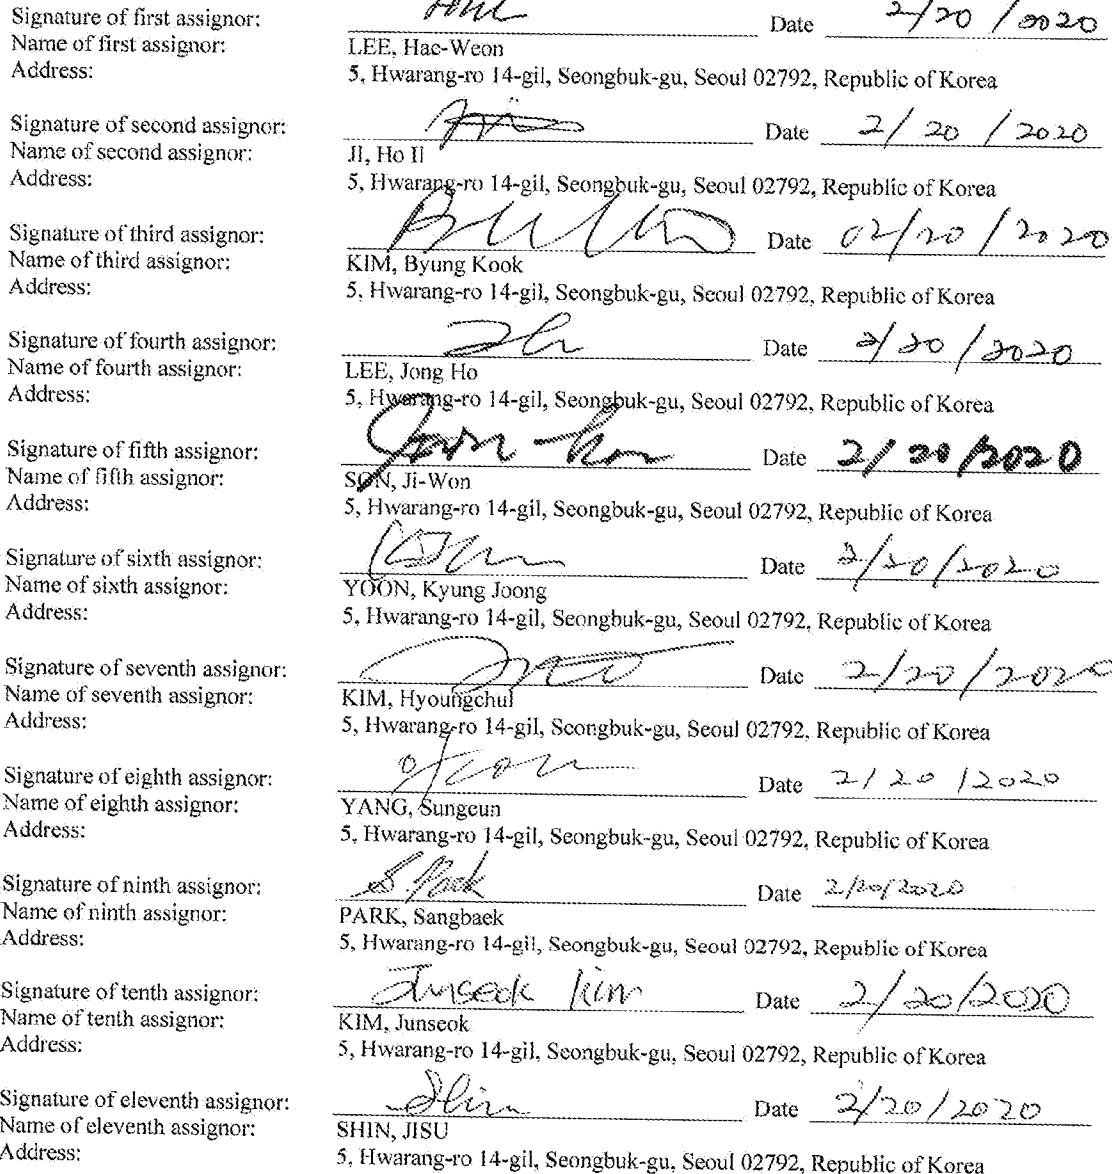 Signature of first assignor: Date 2/20/2020
Name of first assignor: LEE, Hae-Weon
Address: 5, Hwarang-ro 14-gil, Seongbuk-gu, Seoul 02792, Republic of Korea
Signature of second assignor: Date 2/20/2020
Name of second assignor: JI, Ho Il
Address: 5, Hwarang-ro 14-gil, Seongbuk-gu, Seoul 02792, Republic of Korea
Signature of third assignor: Date 02/20/2020
Name of third assignor: KIM, Byung Kook
Address: 5, Hwarang-ro 14-gil, Seongbuk-gu, Seoul 02792, Republic of Korea
Signature of fourth assignor: Date 2/20/2020
Name of fourth assignor: LEE, Jong Ho
Address: 5, Hwarang-ro 14-gil, Seongbuk-gu, Seoul 02792, Republic of Korea
Signature of fifth assignor: Date 2/20/2020
Name of fifth assignor: SON, Ji-Won
Address: 5, Hwarang-ro 14-gil, Seongbuk-gu, Seoul 02792, Republic of Korea
Signature of sixth assignor: Date 2/20/2020
Name of sixth assignor: YOON, Kyung Joong
Address: 5, Hwarang-ro 14-gil, Seongbuk-gu, Seoul 02792, Republic of Korea
Signature of seventh assignor: Date 2/20/2020
Name of seventh assignor: KIM, Hyoungchul
Address: 5, Hwarang-ro 14-gil, Seongbuk-gu, Seoul 02792, Republic of Korea
Signature of eighth assignor: Date 2/20/2020
Name of eighth assignor: YANG, Sungeun
Address: 5, Hwarang-ro 14-gil, Seongbuk-gu, Seoul 02792, Republic of Korea
Signature of ninth assignor: S. Park Date 2/20/2020
Name of ninth assignor: PARK, Sangbaek
Address: 5, Hwarang-ro 14-gil, Seongbuk-gu, Seoul 02792, Republic of Korea
Signature of tenth assignor: Junseok kim Date 2/20/2020
Name of tenth assignor: KIM, Junseok
Address: 5, Hwarang-ro 14-gil, Seongbuk-gu, Seoul 02792, Republic of Korea
Signature of eleventh assignor: Shin Date 2/20/2020
Name of eleventh assignor: SHIN, JISU
Address: 5, Hwarang-ro 14-gil, Seongbuk-gu, Seoul 02792, Republic of Korea